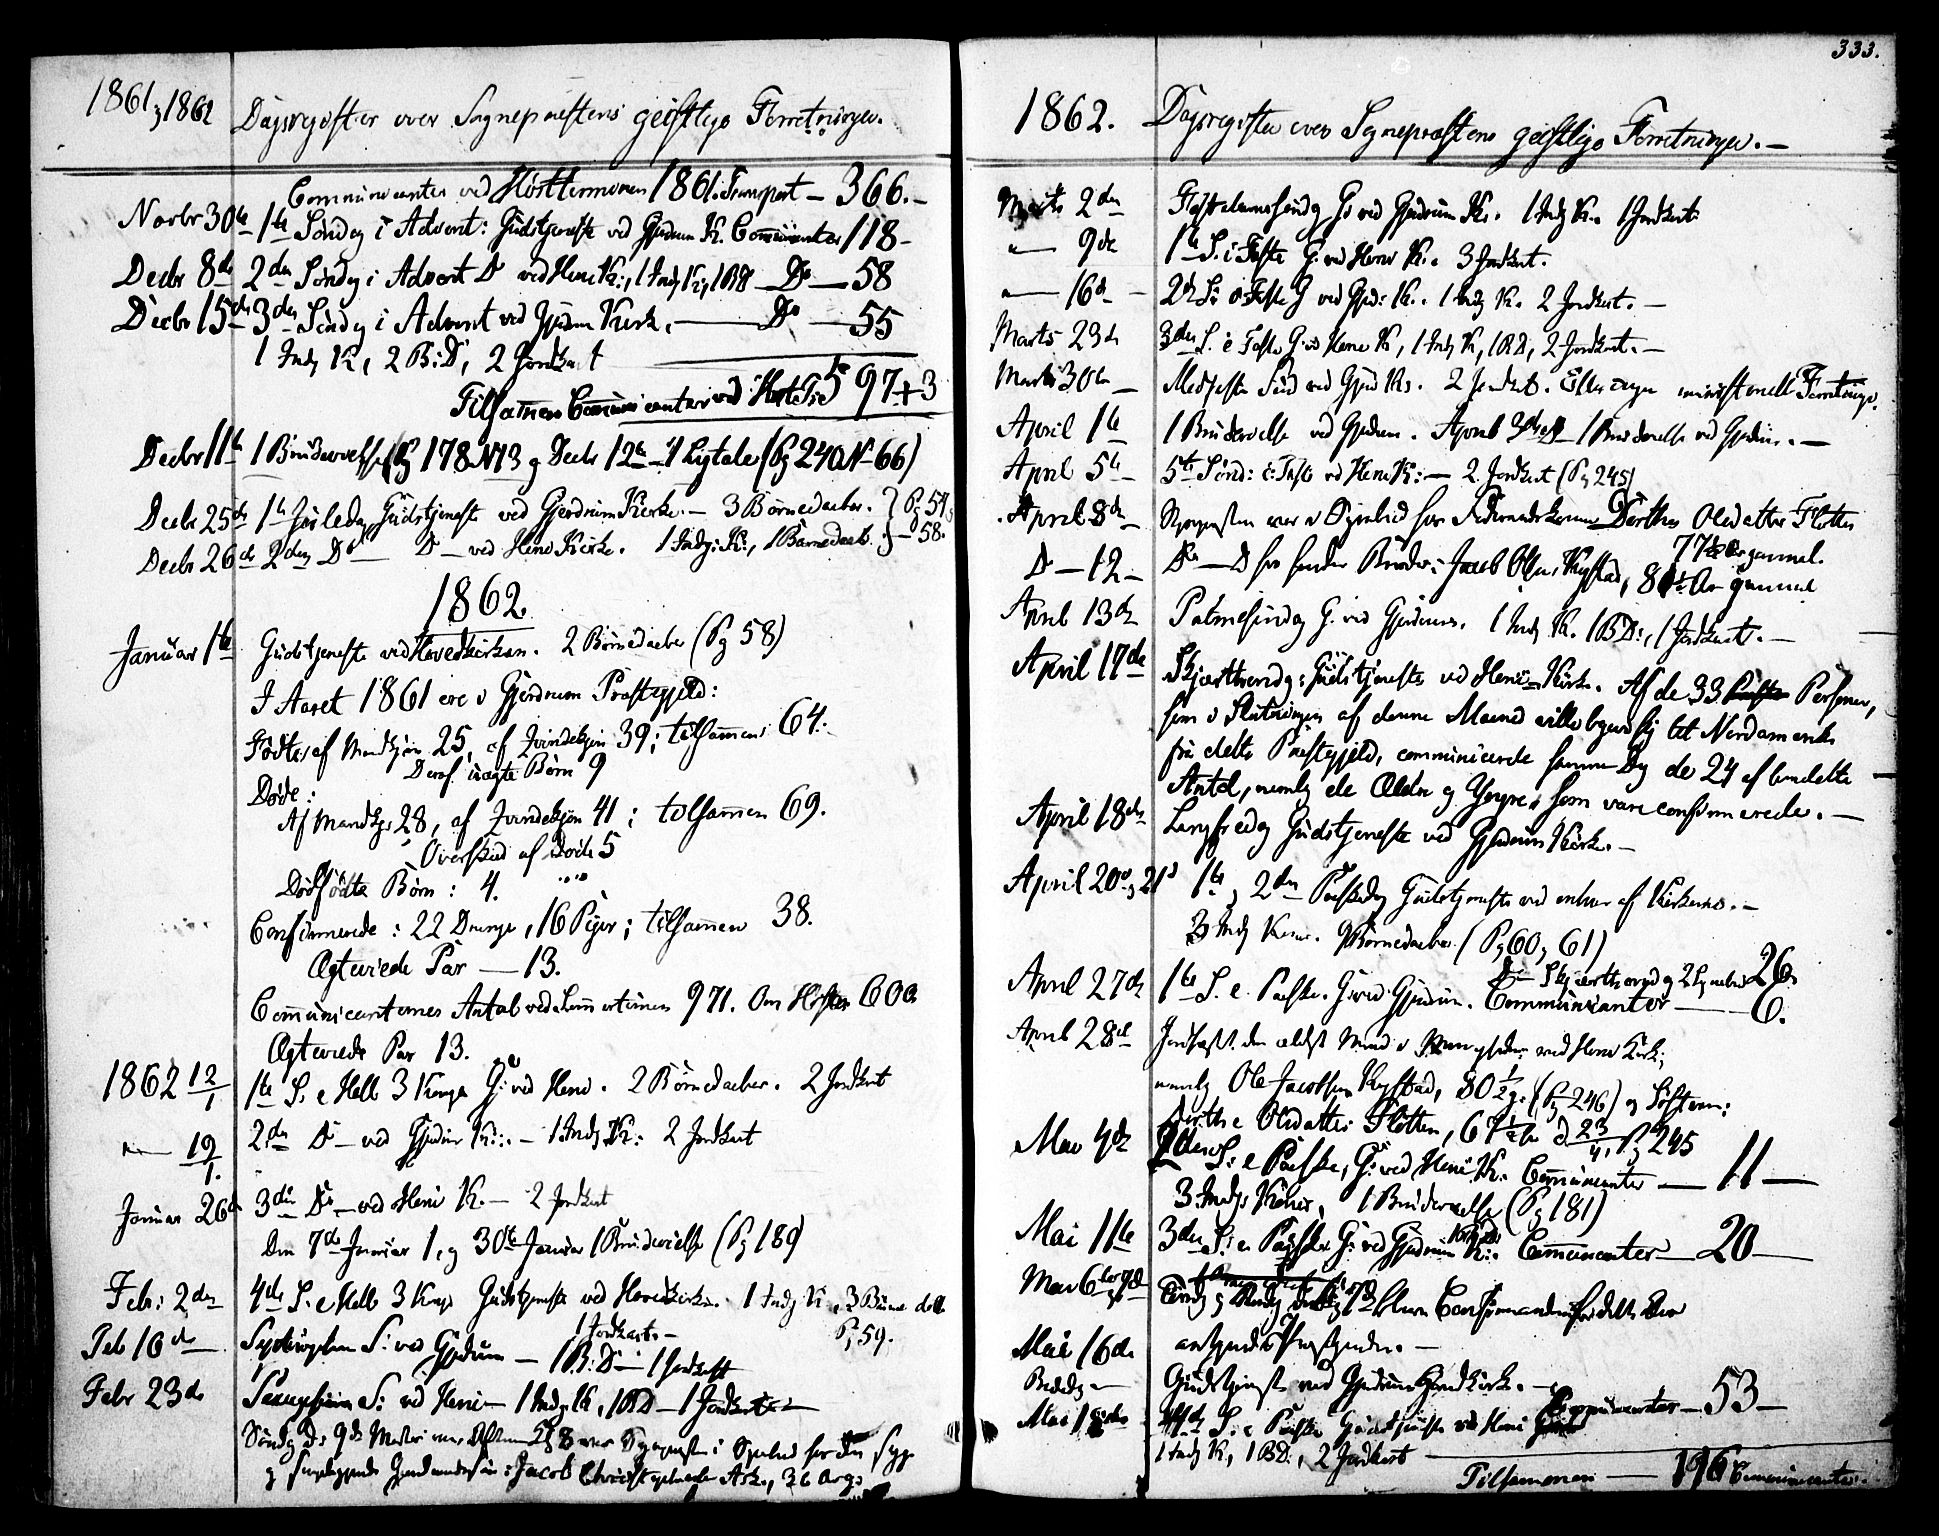 1861 & 1862 Dagsregister over Sognepræstens geistlige Forretninger.
Communicanter ved Høstterminen 1861. Transport – 366.–
Novbr 30te 1ste Søndag i Advent: Gudstjeneste ved Gjerdrum K. Communicanter 118–
Decbr 8de 2den Søndag i Advent Do ved Heni K:, 1 Indg K:, 1 BD – Do – 58
Decbr 15de 3die Søndag i Advent ved Gjerdrum Kirke. – Do – 55
1 Indg K, 2 B:D:, 2 Jordkast
Tilsammen Communicanter ved Høst 597 + 3
Decbr 11te 1 Brudevielse (Pg 178 N 13 g Decbr 12te – 1 Lystale (Pg 240 N 66)
Decbr 25de 1ste Juledag Gudstjeneste ved Gjerdrum Kirke. – 3 Børnedaaber. } Pg 57,
Decbr 26de 2den Do – D – ved Heni Kirke. 1 Indg: K:, 1 Barnedaab. } – 58.
1862.
Januar 1ste Gudstjeneste ved Hovedkirken. 2 Børnedaaber (Pg 58)
I Aaret 1861 ere i Gjerdrum Præstegjeld:
Fødte, af Mandkjøn 25, af Qvindekjøn 39; tilsammen 64.
Deraf uægte Børn 9
Døde:
Af Mandkj: 28, af Qvindekjøn 41; tilsammen 69.
Overskud af døde 5
Dødfødte Børn: 4.
Confirmerede: 22 Drenge, 16 Piger; tilsammen 38.
Ægteviede Par – 13.
Communicanternes Antal ved Sommertiminen 971. Om Høsten 600
Ægteviede Par 13.
1862 12/1 1ste S. e Hell 3 Konge G: ved Heni. 2 Børnedaaber. 2 Jordkast
" – 19/1. 2den Do – ved Gjerdrum K:. – 1 Indg K: 2 Jordkast
Januar 26de 3die Do – ved Heni K. – 2 Jordkast
Den 7de Januar 1, og 30te Januar 1 Brudevielse (Pg 180)
Febr: 2den 4de S. e Hell 3 Konge Gudstjeneste ved Hovedkirken. 1 Indg K, 3 Børne daab
1 Jordkast. – Pg 59.
Feb 16de S: ved Gjerdrum – 1 B: D – 1 Jordkast
Febr 23de S: ved Heni – 1 Indg. K, 1 BD – 1 Jordkast –
Søndag D. 9de i for den syge
g Jacob Ask, 36 Aar g:
333.
1862. Dagsregister over Sognepræstens geistlige Forretninger. –
Marts 2den Fastelavnssøndag G: ved Gjerdrum K. 1 Indg K. 1 Jordkast
" – 9de 1ste S. i Faste G. ved Heni K. 3 Jordkast.
" – 16de – 2den S: i Faste G ved Gjerd: K. 1 Indg K. 2 Jordkast. –
Marts 23de 3die S. i Faste G. ved Heni K, 1 Indg K, 1 BD, 2 Jordkast. –
Marts 30te – Midfaste Sønd ved Gjerd K. 2 Jordkast. Ellers ingen ministerielle Forretninger.
April 1ste 1 Brudevielse ved Gjerdrum. April 1 Brudevielse ved Gjerdrum. –
April 5te 5te Sønd: i Faste ved Heni K: – 2 Jordkast (Pg 245)
April 8de – Sognepræsten var i Sognebud for Dorthe Olsdatter Flotten
77½ Aar gammel.
D – 12 – Do – D for hendes Broder: Jacob Olsen Kystad, 81 Aar gammel
April 13de Palmesøndag G. ved Gjerdrum. 1 Indg K. 1 BD:, 1 Jordkast. –
April 17de Skjærthorsdag: Gudstjeneste ved Heni Kirke. Af de 33 Personer,
som i Slutningen af denne Maaned ville begive sig til Nordamerika
fra dette Præstegjeld, communicerede samme Dag de 24 af bemeldte
Antal, nemlig de Ældre g Yngre, som vare confirmerede. –
April 18de Langfredag Gudstjeneste ved Gjerdrum Kirke. –
April 20de & 21de 1ste & 2den Paaskedag Gudstjeneste ved enhver af Kirkerne. –
3 Indg Koner. 9 Børnedaaber. (Pg 60 & 61)
Do – Skjærthorsdag 26
April 27de 1ste S. e. Paaske. G: ved Gjerdrum. Communicanter – 6.
April 28de Jordfæst. den ældste Mand i ved Heni Kirke,
nemlig Ole Jacobsen Kystad, 80½ g: (Pg 246) og Søsteren:
Dorthe Olsdatter Flotten, d 23/4, Pg 245
Mai 4de 2den S: e Paaske, G: ved Heni K. Communicanter – 11 –
3 Indg. Koner, 1 Brudevielse (Pg 181)
Mai 11te 3die S: e Paaske G: ved Gjerdrum K:. Communicanter – 20 –
Mai 6te & 7de Confirmander for dette Aar
antegnede –
Mai 16de
Bededag – Gudstjeneste ved Gjerdrum Hovedkirke. – Communicanter – 53 –
Mai 18de 4de S. e Paaske Gudstjeneste ved Heni
1 Indg K, 1 BD:, 2 Jordkast
Tilsammen – 196 Communicanter.